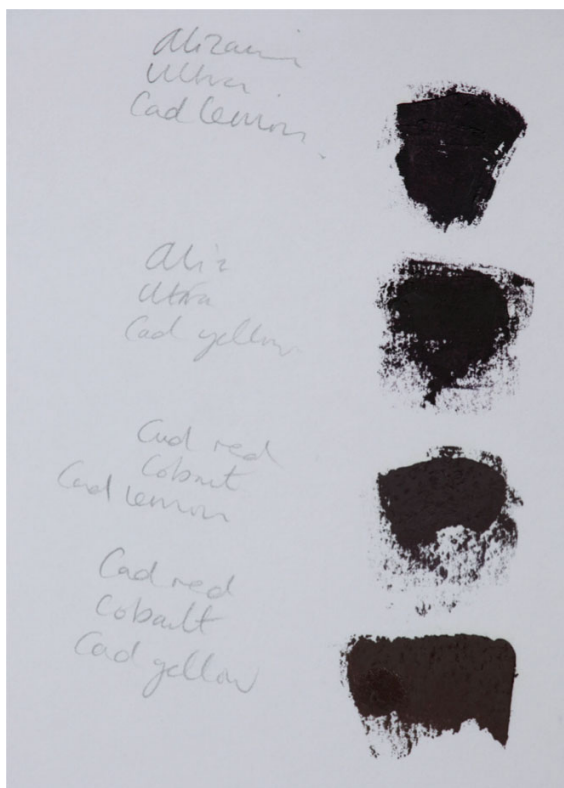 Alizarin
Ultra.
Cad lemon.
Aliz
Ultra
Cad yellow
Cad red
Cobalt
Cad lemon
Cad red
Cobault
Cad yellow